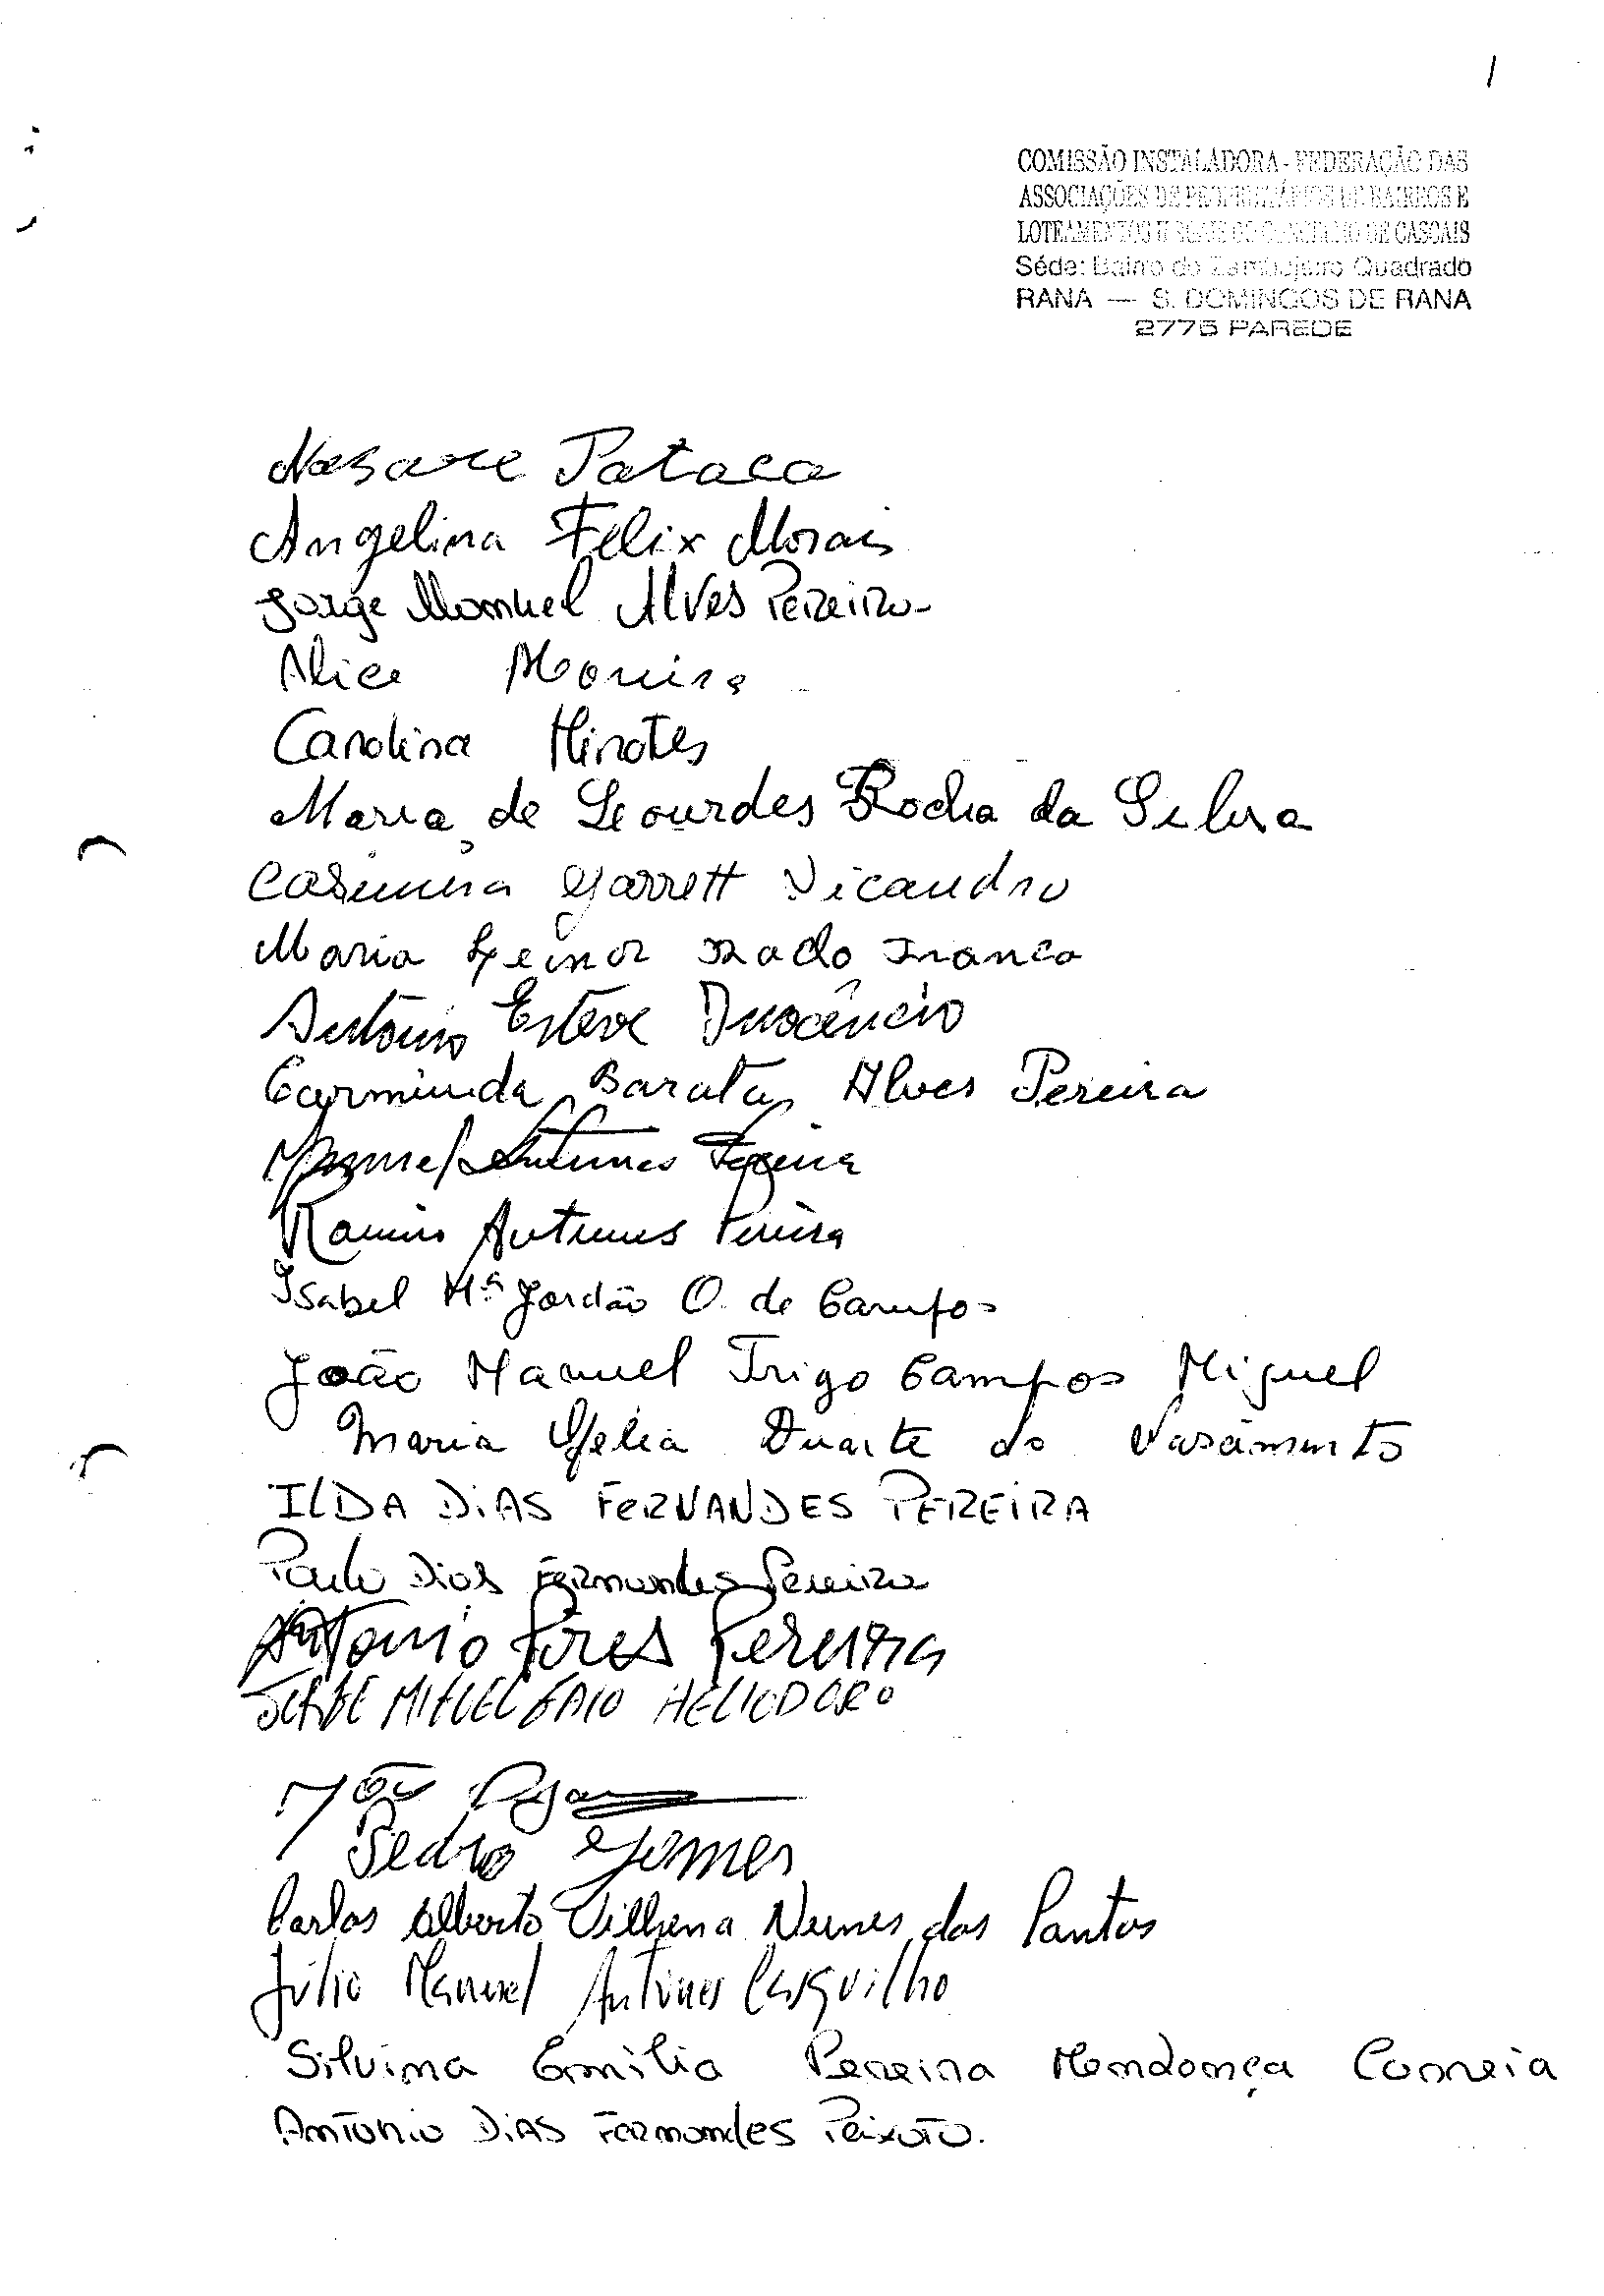 1
COMISSÃO INSTALADORA - FEDERAÇÃO DAS
ASSOCIAÇÕES DE PROPRIETÁRIOS DE BAIRROS E
LOTEAMENTOS ILEGAIS DO CONCELHO DE CASCAIS
Séde: Bairro do Zambujeiro Quadrado
RANA — S. DOMINGOS DE RANA
2775 PAREDE
Nasare Pataca
Angelina Felix Morais
Jorge Manuel Alves Pereira
Alice
Carolina Minotes
Maria de Lourdes Rocha da Silva
Casimira Garrett Nicandro
Maria Leinor
António Esteve Inocêncio
Carminda Barata Alves Pereira
Manuel Antunes
Ramiro Antunes Pereira
Isabel Mª Jordão O. de Campos
João Manuel Trigo Campos Miguel
Maria Ofélia Duarte do
ILDA DIAS FERNANDES PEREIRA
Paulo Dias Fernandes Pereira
António Pires Pereira
JORGE MIGUEL GAIO HELIODORO
João
Pedro Gomes
Carlos Alberto Vilhena Nunes dos Santos
Júlio Manuel Antunes Casquilho
Silvina Emília Pereira Mendonça Correia
Antonio Dias Fernandes Peixoto.